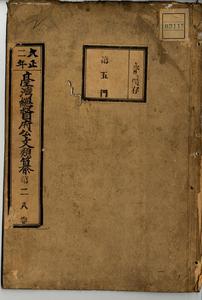 大正二年
臺灣總督府公文類纂
第二八巻
第五門
永久保存